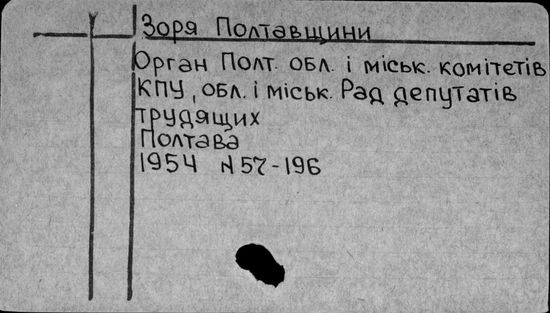 Зоря Полтавщини
Орган Полт. обл. і міськ. комітетів
КПУ, обл. і міськ. Рад депутатів
трудящих
Полтава
1954 N 57-196